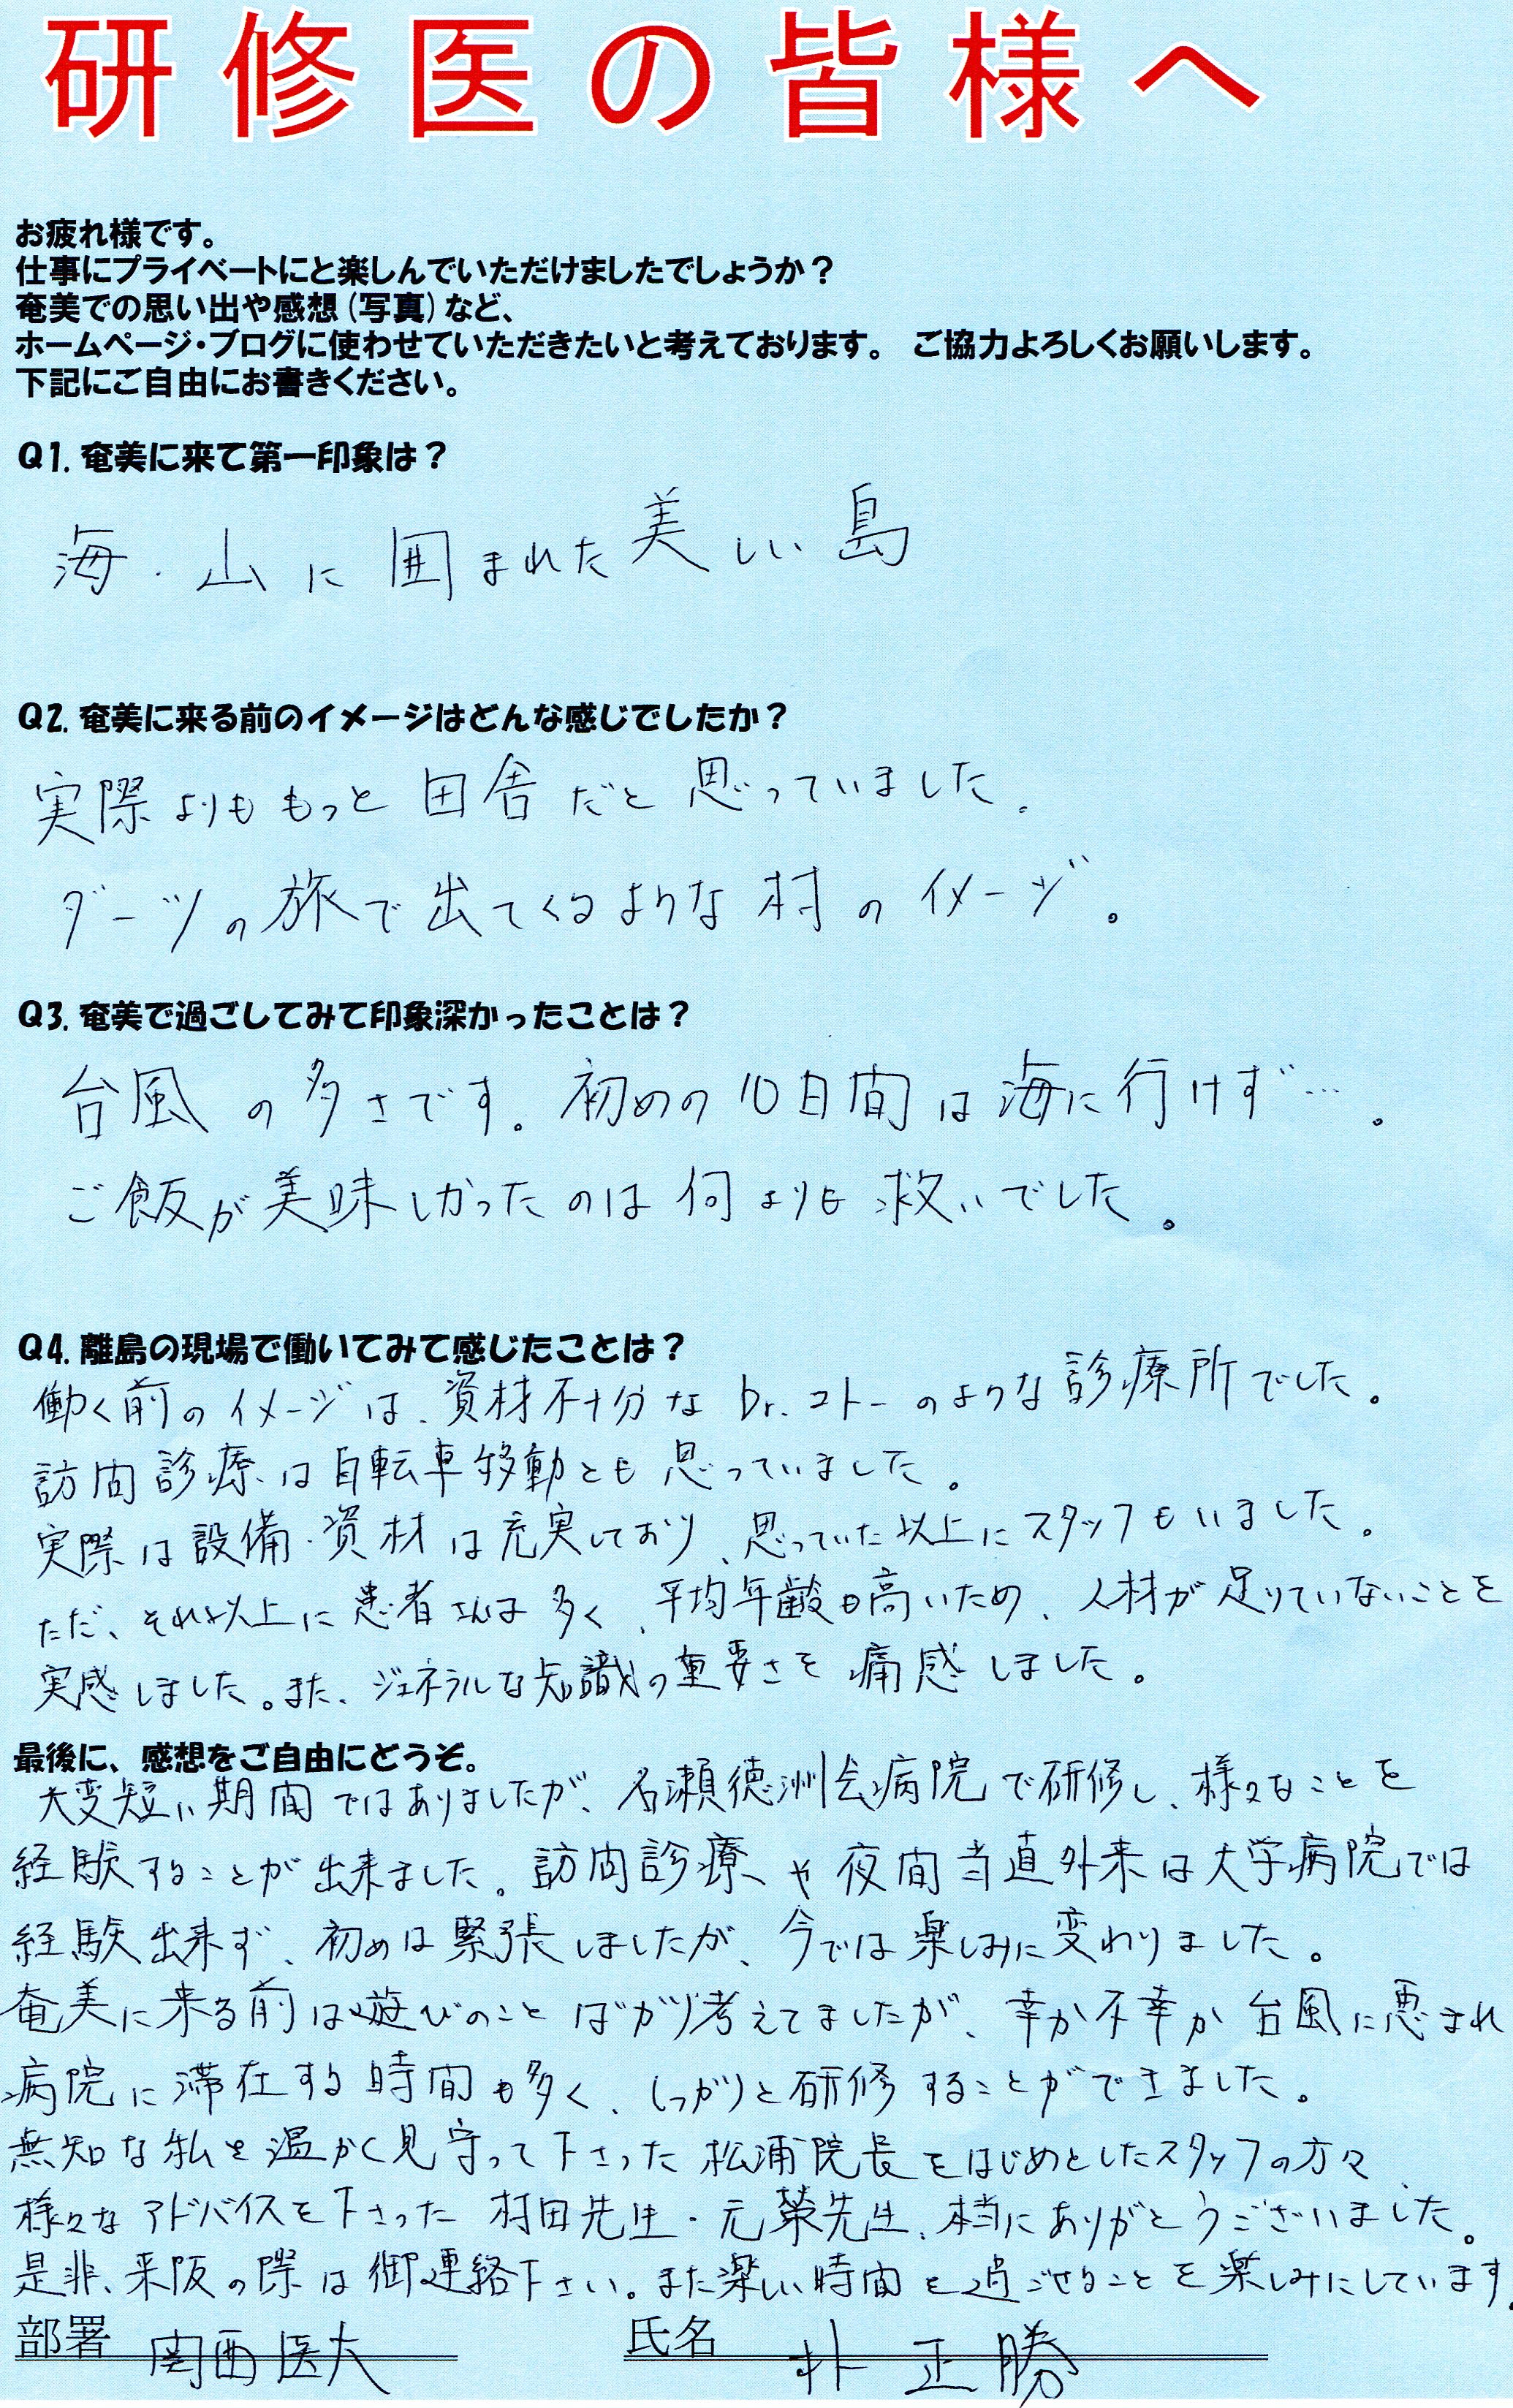 研修医の皆様へ
お疲れ様です。
仕事にプライベートにと楽しんでいただけましたでしょうか？
奄美での思い出や感想（写真）など、
ホームページ・ブログに使わせていただきたいと考えております。 ご協力よろしくお願いします。
下記にご自由にお書きください。
Q1. 奄美に来て第一印象は？
海・山に囲まれた美しい島
Q2. 奄美に来る前のイメージはどんな感じでしたか？
実際よりももっと田舎だと思っていました。
ダーツの旅で出てくるような村のイメージ。
Q3. 奄美で過ごしてみて印象深かったことは？
台風の多さです。初めの10日間は海に行けず…。
ご飯が美味しかったのは何よりも救いでした。
Q4. 離島の現場で働いてみて感じたことは？
働く前のイメージは、資材不十分なDr.コトーのような診療所でした。
訪問診療は自転車移動とも思っていました。
実際は設備・資材は充実しており、思っていた以上にスタッフもいました。
ただ、それ以上に患者さんは多く、平均年齢も高いため、人材が足りていないことを
実感しました。また、ジェネラルな知識の重要さを痛感しました。
最後に、感想をご自由にどうぞ。
大変短い期間ではありましたが、名瀬徳洲会病院で研修し、様々なことを
経験することが出来ました。訪問診療や夜間当直外来は大学病院では
経験出来ず、初めは緊張しましたが、今では楽しみに変わりました。
奄美に来る前は遊びのことばかり考えてましたが、幸か不幸か台風に悪まれ
病院に滞在する時間も多く、しっかりと研修することができました。
無知な私を温かく見守って下さった松浦院長をはじめとしたスタッフの方々、
様々なアドバイスを下さった村田先生・元榮先生、本当にありがとうございました。
是非、来阪の際は御連絡下さい。また楽しい時間を過ごせることを楽しみにしています。
部署 関西医大 氏名 朴正勝